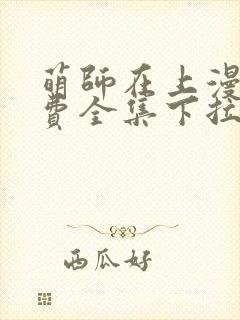 萌師在上漫
費全集下拉
西瓜好